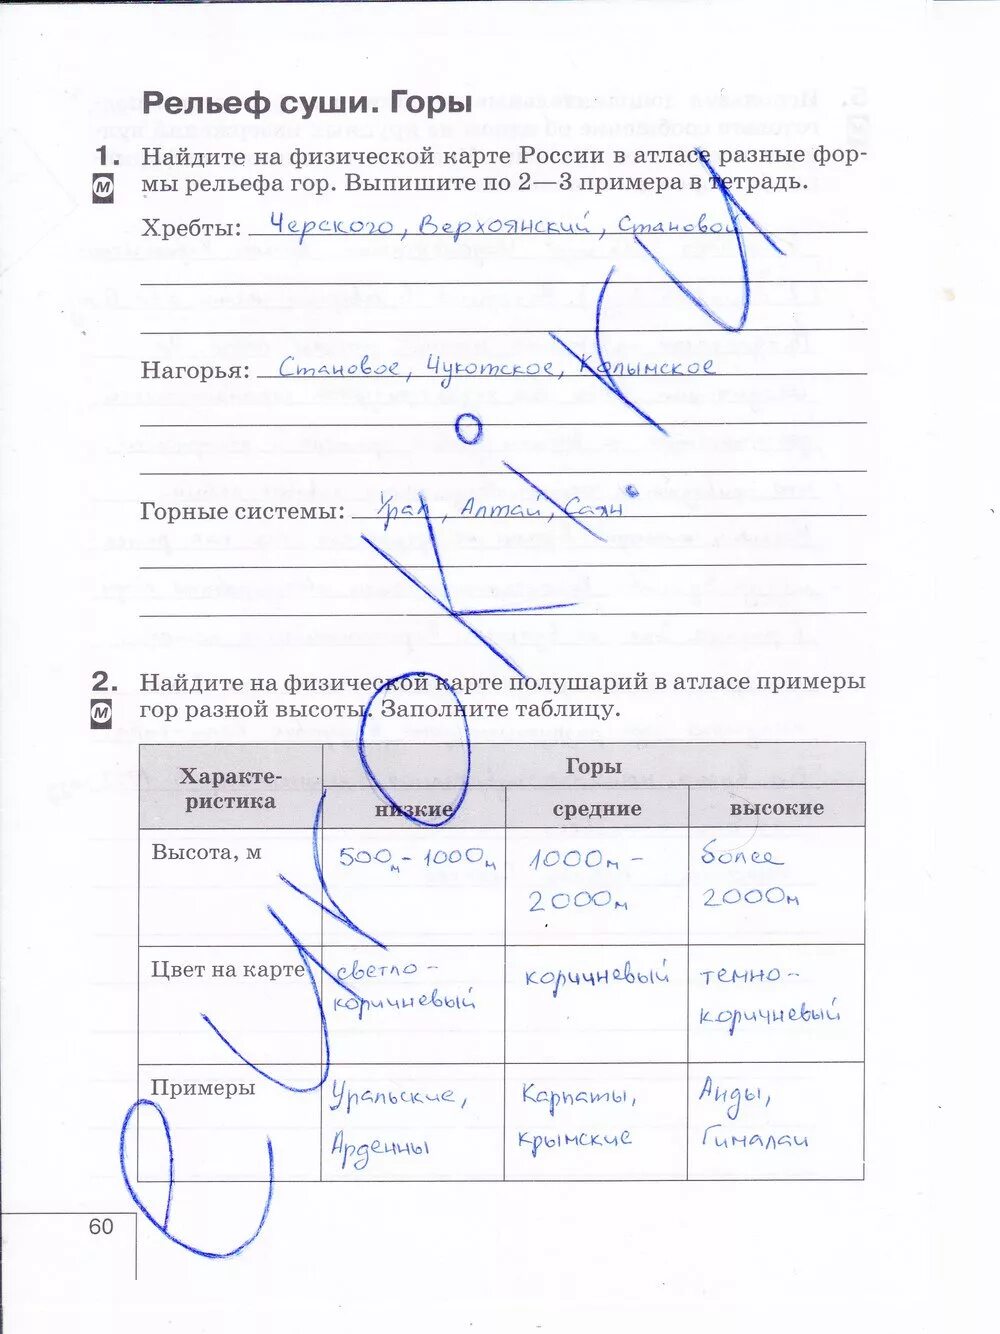 Рельеф суши. Горы
1. Найдите на физической карте России в атласе разные фор-
М мы рельефа гор. Выпишите по 2—3 примера в тетрадь.
Хребты: Черского, Верхоянский, Становой
Нагорья: Становое, Чукотское, Колымское
Горные системы: Урал, Алтай, Саян
2. Найдите на физической карте полушарий в атласе примеры
М гор разной высоты. Заполните таблицу.
Характе-
ристика
Горы
низкие средние высокие
Высота, м 500м - 1000м 1000м - более
2000м 2000м
Цвет на карте светло- коричневый темно-
коричневый коричневый
Примеры Уральские, Карпаты, Анды,
Арденны крымские Гималаи
60